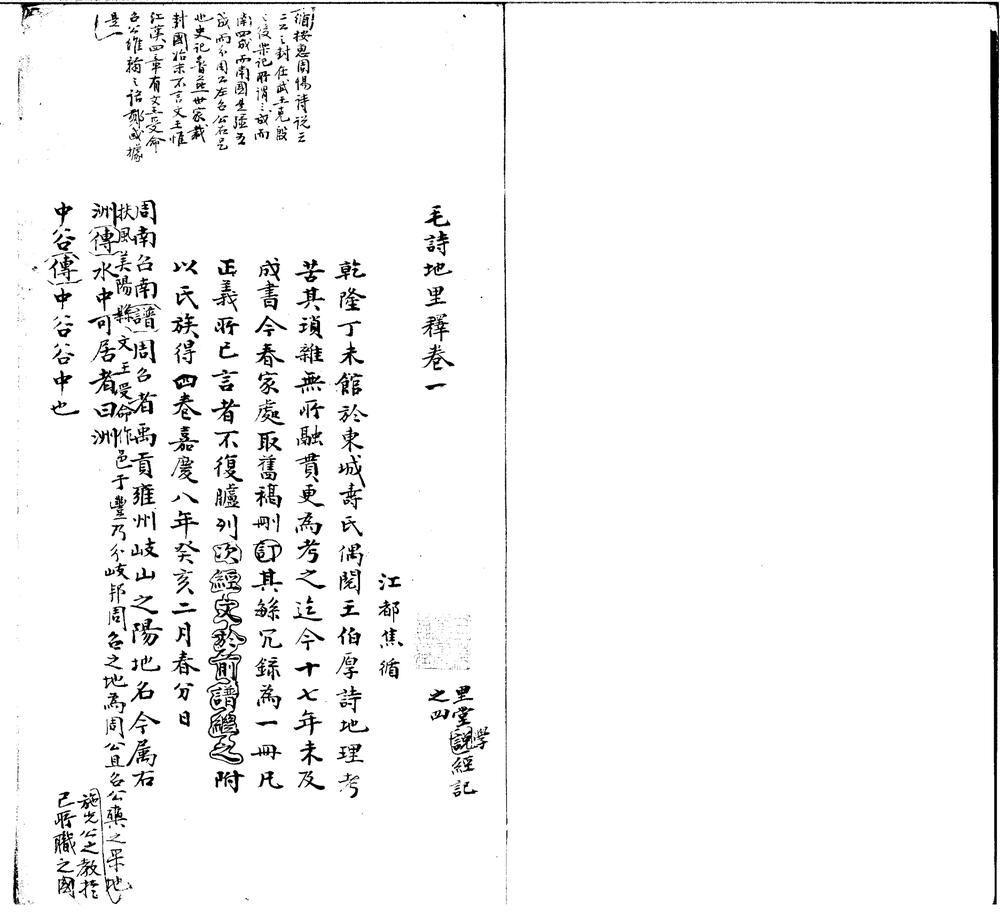 毛詩地里釋卷一
里堂說學經記
之四
江都焦循
乾隆丁未館於東城壽氏偶閱王伯厚詩地理考
苦其瑣雜無所融貫更為考之迄今十七年未及
成書今春家處取舊稿刪訂其緐冗錄為一冊凡
正義所已言者不復臚列次經文於前譜繼之附
以氏族得四卷嘉慶八年癸亥二月春分日
循按惠周惕詩說云
二公之封在武王克殷
之後樂記所謂三成而
南四成而南國是疆五
成而分周公左召公右是
也史記魯燕世家載
封國始末不言文王惟
江漢四章有文王受命
召公維翰之語鄭或據
是
周南召南譜周召者禹貢雍州岐山之陽地名今属右
扶風美陽縣文王受命作邑于豐乃分岐邦周召之地為周公旦召公奭之采地
施先公之教於
己所職之國
洲傳水中可居者曰洲
中谷傳中谷谷中也